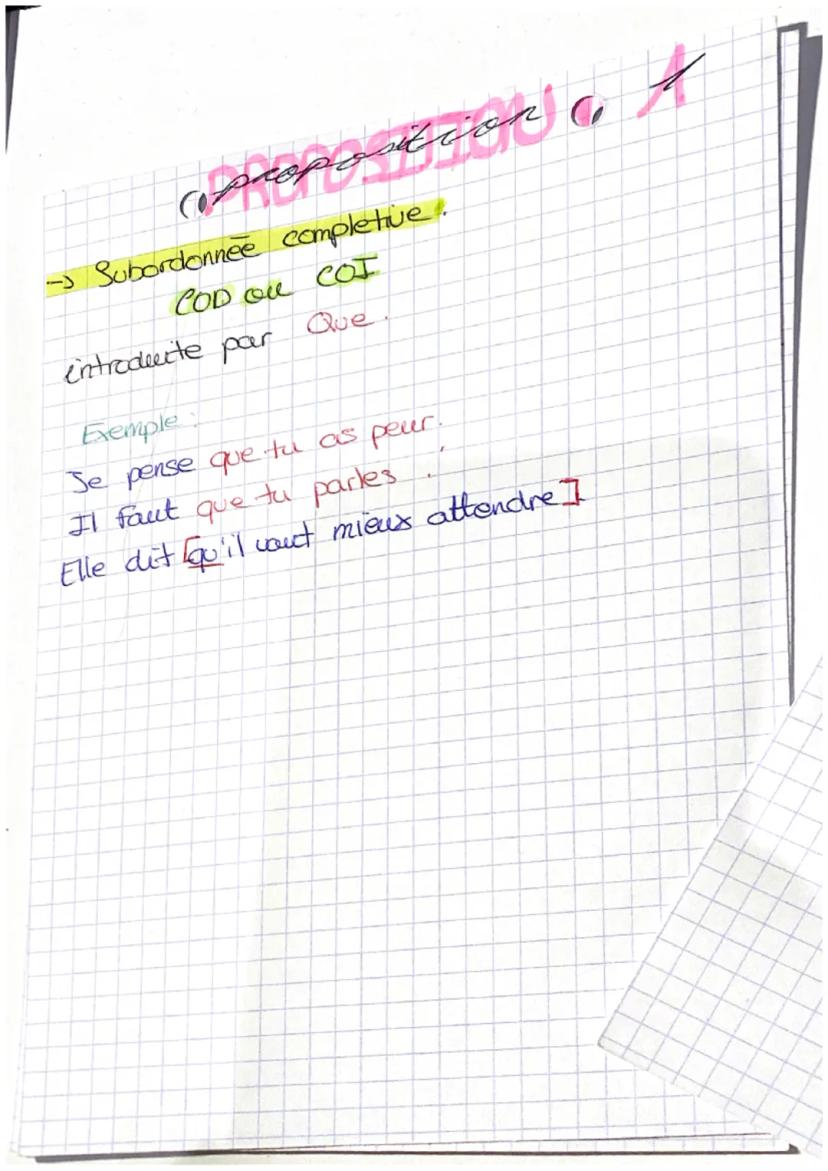 PROPOSITION
proposition 1
→ Subordonnée completive.
COD ou COI
introduite par Que.
Exemple:
Je pense que tu as peur.
Il faut que tu parles.
Elle dit [qu'il vaut mieux attendre]